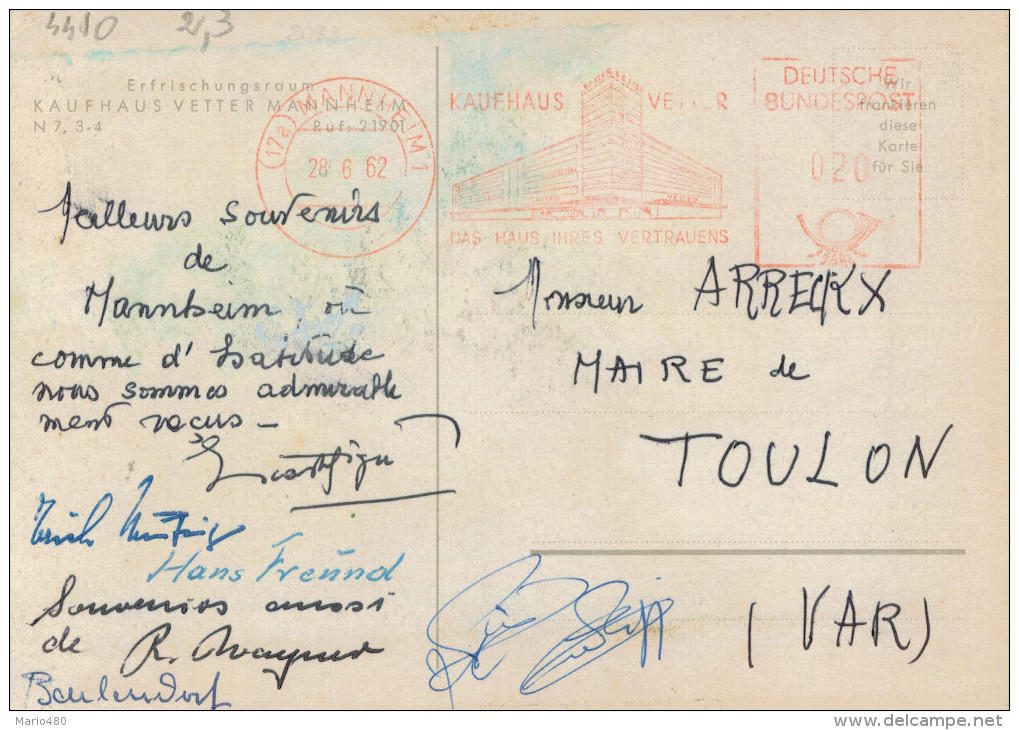 4410 2,3 2033
Erfrischungsraum
KAUFHAUS VETTER MANNHEIM
N 7, 3-4 Ruf: 21901
(17a) MANNHEIM 1
28 6 62
KAUFHAUS VETTER
DAS HAUS IHRES VERTRAUENS
DEUTSCHE
BUNDESPOST
020
Wir
frankieren
diese
Karte
für Sie
Meilleurs souvenirs
de
Mannheim où
comme d'habitude
nous sommes admirable
ment reçus -
Erich
Hans Freund
Souvenirs aussi
de R. Wagner
Monsieur ARRECKX
MAIRE de
TOULON
(VAR)
Mario480